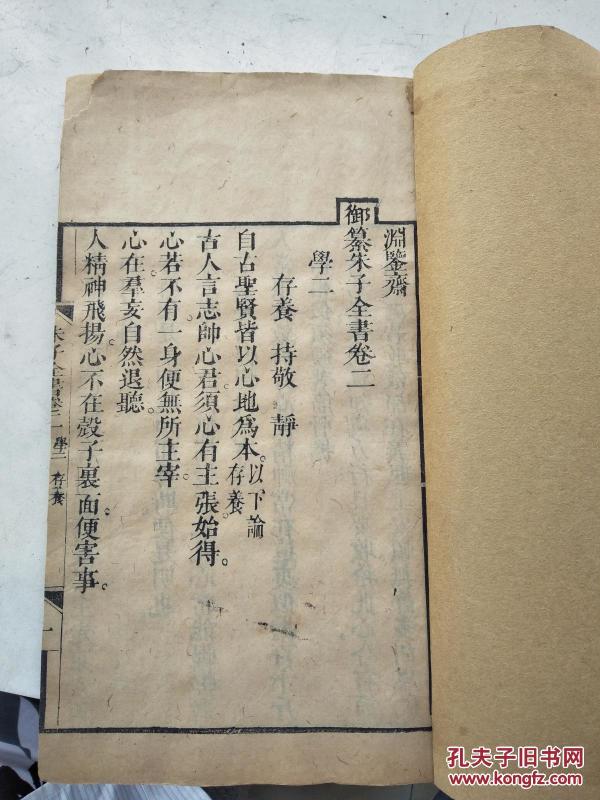 淵鑒齋
御纂朱子全書卷二
學二
存養 持敬 靜
自古聖賢皆以心地爲本。以下論存養
古人言志帥心君須心有主張始得。
心若不有一身便無所主宰。
心在羣妄自然退聽。
人精神飛揚心不在殼子裏面便害事。
朱子全書卷二 學二 存養 一
孔夫子旧书网
www.kongfz.com